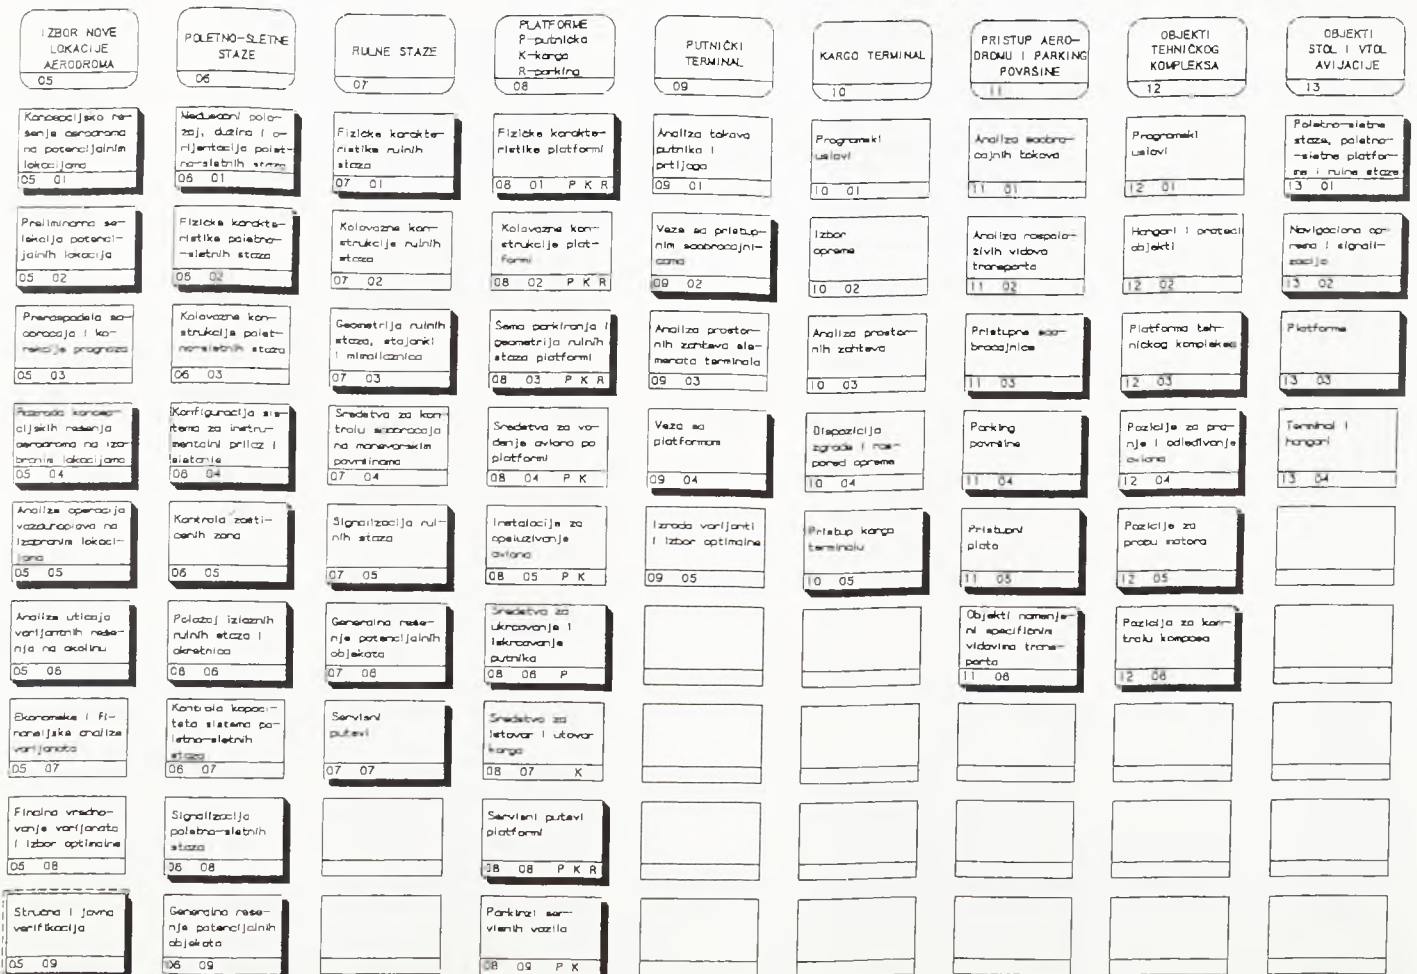 IZBOR NOVE
LOKACIJE
AERODROMA
05
Koncepcijsko re-
šenje aerodroma
na potencijalnim
lokacijama
05 01
Preliminarna se-
lekcija potenci-
jalnih lokacija
05 02
Preraspodela sa-
obracaja i ko-
rekcije prognoza
05 03
Razrada koncep-
cijskih rešenja
aerodroma na iza-
branim lokacijama
05 04
Analiza operacija
vazduhoplova na
izabranim lokaci-
jama
05 05
Analiza uticaja
varijantnih reše-
nja na okolinu
05 06
Ekonomska i fi-
nansijska analiza
varijanata
05 07
Finalno vredno-
vanje varijanata
i izbor optimalne
05 08
Stručna i javna
verifikacija
05 09
POLETNO-SLETNE
STAZE
06
Međusobni polo-
zaj, duzina i o-
rijentacija polet-
no-sletnih staza
06 01
Fizicke karakte-
ristike poletno-
-sletnih staza
06 02
Kolovozne kon-
strukcije polet-
no-sletnih staza
06 03
Konfiguracija sis-
tema za instru-
mentalni prilaz i
sletanje
06 04
Kontrola zasti-
cenih zona
06 05
Polozaj izlaznih
rulnih staza i
okretnica
06 06
Kontrola kapaci-
teta sistema po-
letno-sletnih
staza
06 07
Signalizacija
poletno-sletnih
staza
06 08
Generalna reše-
nja potencijalnih
objekata
06 09
RULNE STAZE
07
Fizicke karakte-
ristike rulnih
staza
07 01
Kolovozne kon-
strukcije rulnih
staza
07 02
Geometrija rulnih
staza, stajanki
i mimoilaznica
07 03
Sredstva za kon-
trolu saobracaja
na manevarskim
površinama
07 04
Signalizacija rul-
nih staza
07 05
Generalna reše-
nja potencijalnih
objekata
07 06
Servisni
putevi
07 07
PLATFORME
P-putnička
K-kargo
R-parking
08
Fizicke karakte-
ristike platformi
08 01 P K R
Kolovozne kon-
strukcije plat-
formi
08 02 P K R
Šema parkiranja i
geometrija rulnih
staza platformi
08 03 P K R
Sredstva za vo-
đenje aviona po
platformi
08 04 P K
Instalacije za
opsluzivanje
aviona
08 05 P K
Sredstva za
ukrcavanje i
iskrcavanje
putnika
08 06 P
Sredstva za
istovar i utovar
karga
08 07 K
Servisni putevi
platformi
08 08 P K R
Parkinzi ser-
visnih vozila
08 09 P K
PUTNIČKI
TERMINAL
09
Analiza tokova
putnika i
prtljaga
09 01
Veze sa pristup-
nim saobracajni-
cama
09 02
Analiza prostor-
nih zahteva ele-
menata terminala
09 03
Veza sa
platformom
09 04
Izrada varijanti
i izbor optimalne
09 05
KARGO TERMINAL
10
Programski
uslovi
10 01
Izbor
opreme
10 02
Analiza prostor-
nih zahteva
10 03
Dispozicija
zgrade i ras-
pored opreme
10 04
Pristup kargo
terminalu
10 05
PRISTUP AERO-
DROMU I PARKING
POVRŠINE
11
Analiza saobra-
cajnih tokova
11 01
Analiza raspolo-
živih vidova
transporta
11 02
Pristupne sao-
bracajnice
11 03
Parking
površine
11 04
Pristupni
plato
11 05
Objekti namenje-
ni specifičnim
vidovima trans-
porta
11 06
OBJEKTI
TEHNIČKOG
KOMPLEKSA
12
Programski
uslovi
12 01
Hangari i prateći
objekti
12 02
Platforma teh-
ničkog kompleksa
12 03
Pozicije za pra-
nje i odleđivanje
aviona
12 04
Pozicije za
probu motora
12 05
Pozicija za kon-
trolu kompasa
12 06
OBJEKTI
STOL I VTOL
AVIJACIJE
13
Poletno-sletne
staze, poletno-
-sletne platfor-
me i rulne staze
13 01
Navigaciona op-
rema i signali-
zacija
13 02
Platforme
13 03
Terminal i
hangari
13 04